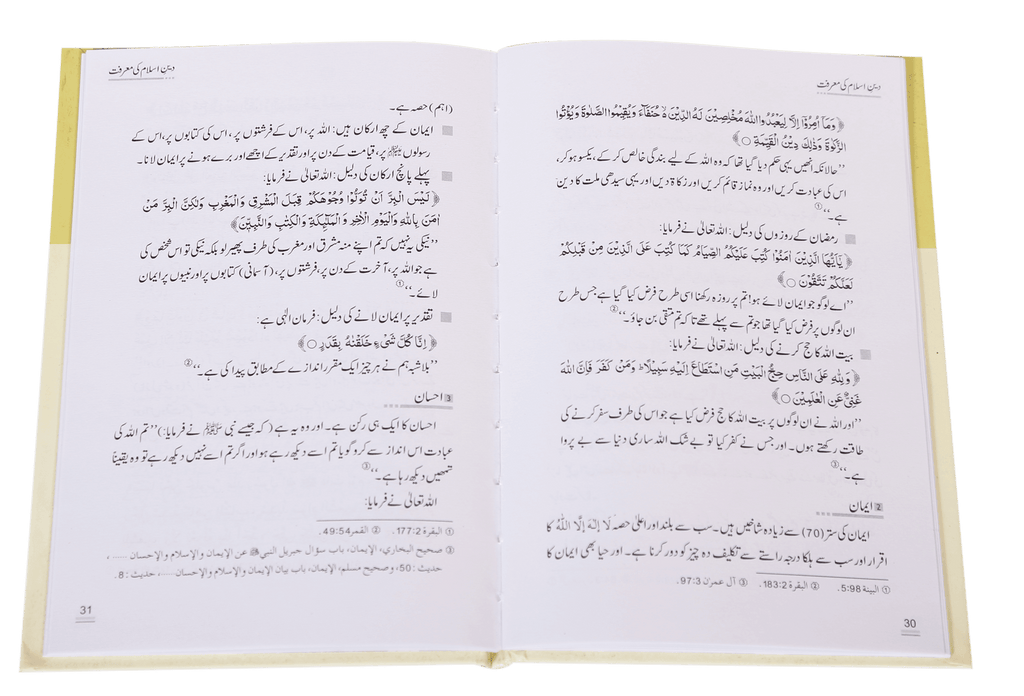 دینِ اسلام کی معرفت
﴿ وَمَآ اُمِرُوْٓا اِلَّا لِيَعْبُدُوا اللّٰهَ مُخْلِصِيْنَ لَهُ الدِّيْنَ ۙ حُنَفَآءَ وَيُقِيْمُوا الصَّلٰوةَ وَيُؤْتُوا
الزَّكٰوةَ وَذٰلِكَ دِيْنُ الْقَيِّمَةِ ○ ﴾
’’حالانکہ انھیں یہی حکم دیا گیا تھا کہ وہ اللہ کے لیے بندگی خالص کر کے، یکسو ہو کر،
اس کی عبادت کریں اور وہ نماز قائم کریں اور زکاۃ دیں اور یہی سیدھی ملت کا دین
ہے۔‘‘①
رمضان کے روزوں کی دلیل: اللہ تعالیٰ نے فرمایا:
﴿ يٰٓاَيُّهَا الَّذِيْنَ اٰمَنُوْا كُتِبَ عَلَيْكُمُ الصِّيَامُ كَمَا كُتِبَ عَلَى الَّذِيْنَ مِنْ قَبْلِكُمْ
لَعَلَّكُمْ تَتَّقُوْنَ ○ ﴾
’’اے لوگو جو ایمان لائے ہو! تم پر روزہ رکھنا اسی طرح فرض کیا گیا ہے جس طرح
ان لوگوں پر فرض کیا گیا تھا جو تم سے پہلے تھے تاکہ تم متقی بن جاؤ۔‘‘②
بیت اللہ کا حج کرنے کی دلیل: اللہ تعالیٰ نے فرمایا:
﴿ وَلِلّٰهِ عَلَى النَّاسِ حِجُّ الْبَيْتِ مَنِ اسْتَطَاعَ اِلَيْهِ سَبِيْلًا ؕ وَمَنْ كَفَرَ فَاِنَّ اللّٰهَ
غَنِيٌّ عَنِ الْعٰلَمِيْنَ ○ ﴾
’’اور اللہ نے ان لوگوں پر بیت اللہ کا حج فرض کیا ہے جو اس کی طرف سفر کرنے کی
طاقت رکھتے ہوں۔ اور جس نے کفر کیا تو بے شک اللہ ساری دنیا سے بے پروا
ہے۔‘‘③
2 ایمان
ایمان کی ستر (70) سے زیادہ شاخیں ہیں۔ سب سے بلند اور اعلیٰ حصہ لَا إِلٰهَ إِلَّا اللّٰهُ کا
اقرار اور سب سے ہلکا درجہ راستے سے تکلیف دہ چیز کو دور کرنا ہے۔ اور حیا بھی ایمان کا
① البینة 5:98. ② البقرة 183:2. ③ آل عمران 97:3.
30
دینِ اسلام کی معرفت
(اہم) حصہ ہے۔
ایمان کے چھ ارکان ہیں: اللہ پر، اس کے فرشتوں پر، اس کی کتابوں پر، اس کے
رسولوں ﷺ پر، قیامت کے دن پر اور تقدیر کے اچھے اور برے ہونے پر ایمان لانا۔
پہلے پانچ ارکان کی دلیل: اللہ تعالیٰ نے فرمایا:
﴿ لَيْسَ الْبِرَّ اَنْ تُوَلُّوْا وُجُوْهَكُمْ قِبَلَ الْمَشْرِقِ وَالْمَغْرِبِ وَلٰكِنَّ الْبِرَّ مَنْ
اٰمَنَ بِاللّٰهِ وَالْيَوْمِ الْاٰخِرِ وَالْمَلٰٓئِكَةِ وَالْكِتٰبِ وَالنَّبِيّٖنَ ﴾
’’نیکی یہ نہیں کہ تم اپنے منہ مشرق اور مغرب کی طرف پھیر لو بلکہ نیکی تو اس شخص کی
ہے جو اللہ پر، آخرت کے دن پر، فرشتوں پر، (آسمانی) کتابوں پر اور نبیوں پر ایمان
لائے۔‘‘①
تقدیر پر ایمان لانے کی دلیل: فرمان الٰہی ہے:
﴿ اِنَّا كُلَّ شَيْءٍ خَلَقْنٰهُ بِقَدَرٍ ○ ﴾
’’بلاشبہ ہم نے ہر چیز ایک مقرر اندازے کے مطابق پیدا کی ہے۔‘‘②
3 احسان
احسان کا ایک ہی رکن ہے۔ اور وہ یہ ہے (کہ جیسے نبی ﷺ نے فرمایا:) ’’تم اللہ کی
عبادت اس انداز سے کرو گویا تم اسے دیکھ رہے ہو اور اگر تم اسے نہیں دیکھ رہے تو وہ یقیناً
تمھیں دیکھ رہا ہے۔‘‘③
اللہ تعالیٰ نے فرمایا:
① البقرة 177:2. ② القمر 49:54.
③ صحیح البخاري، الإیمان، باب سؤال جبریل النبي ﷺ عن الإیمان والإسلام والإحسان ......،
حدیث : 50، وصحیح مسلم، الإیمان، باب بیان الإیمان والإسلام والإحسان......، حدیث : 8.
31